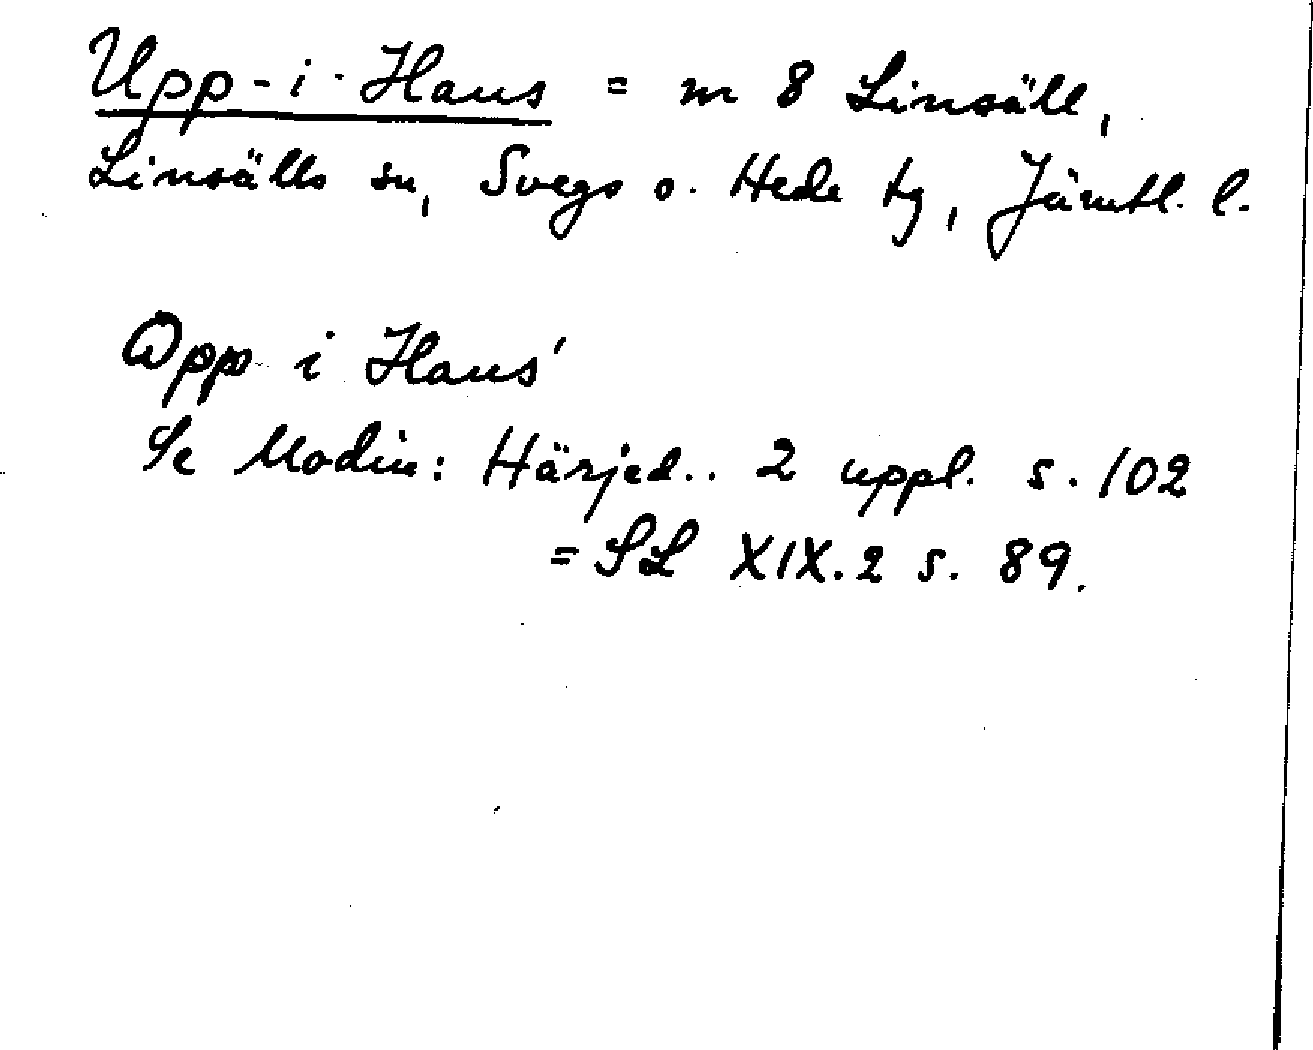 Upp-i-Haus = m 8 Linsäll,
Linsälls sn, Svegs o. Hede tg, Jämtl. l.
Opp i Haus'
Se Modin: Härjed.. 2 uppl. s. 102
= SL XIX.2 s. 89.